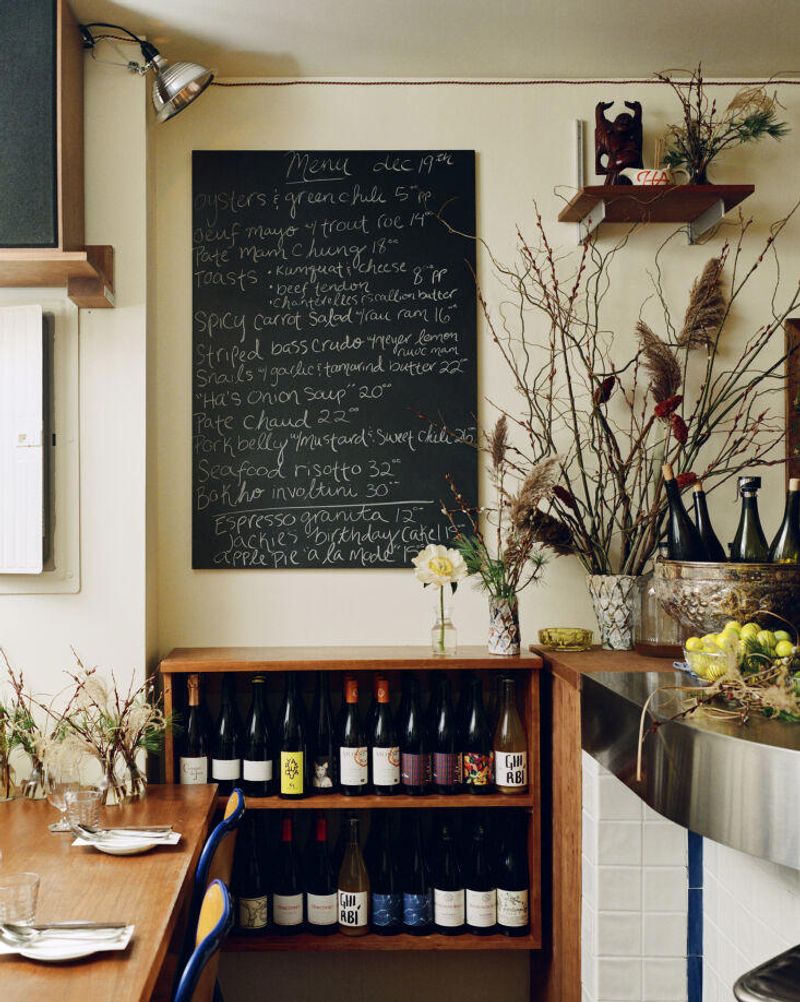 Menu dec 19th
oysters & green chili 5⁰⁰pp
oeuf mayo w/ trout roe 14⁰⁰
Pate Mam Chung 18⁰⁰
Toasts • Kumquat & cheese 8⁰⁰pp
• beef tendon
• chanterelles & scallion butter
Spicy Carrot Salad w/ rau ram 16⁰⁰
Striped bass crudo w/ meyer lemon
nuoc mam
Snails w/ garlic & tamarind butter 22⁰⁰
"Ha's Onion Soup" 20⁰⁰
Pate chaud 22⁰⁰
Pork belly w/ Mustard & Sweet Chili 26⁰⁰
Seafood risotto 32⁰⁰
Bak ho involtini 30⁰⁰
Espresso granita 12⁰⁰
Jackie's birthday cake! 15⁰⁰
apple pie 'a la Mode' 15⁰⁰
HA
GHI
RBI
GHI
RBI